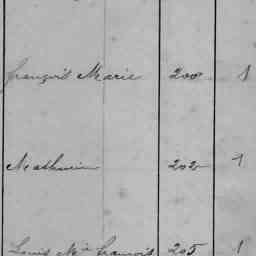 françois Marie 200 1
Mathurin 202 1
Louis Mie françois 205 1